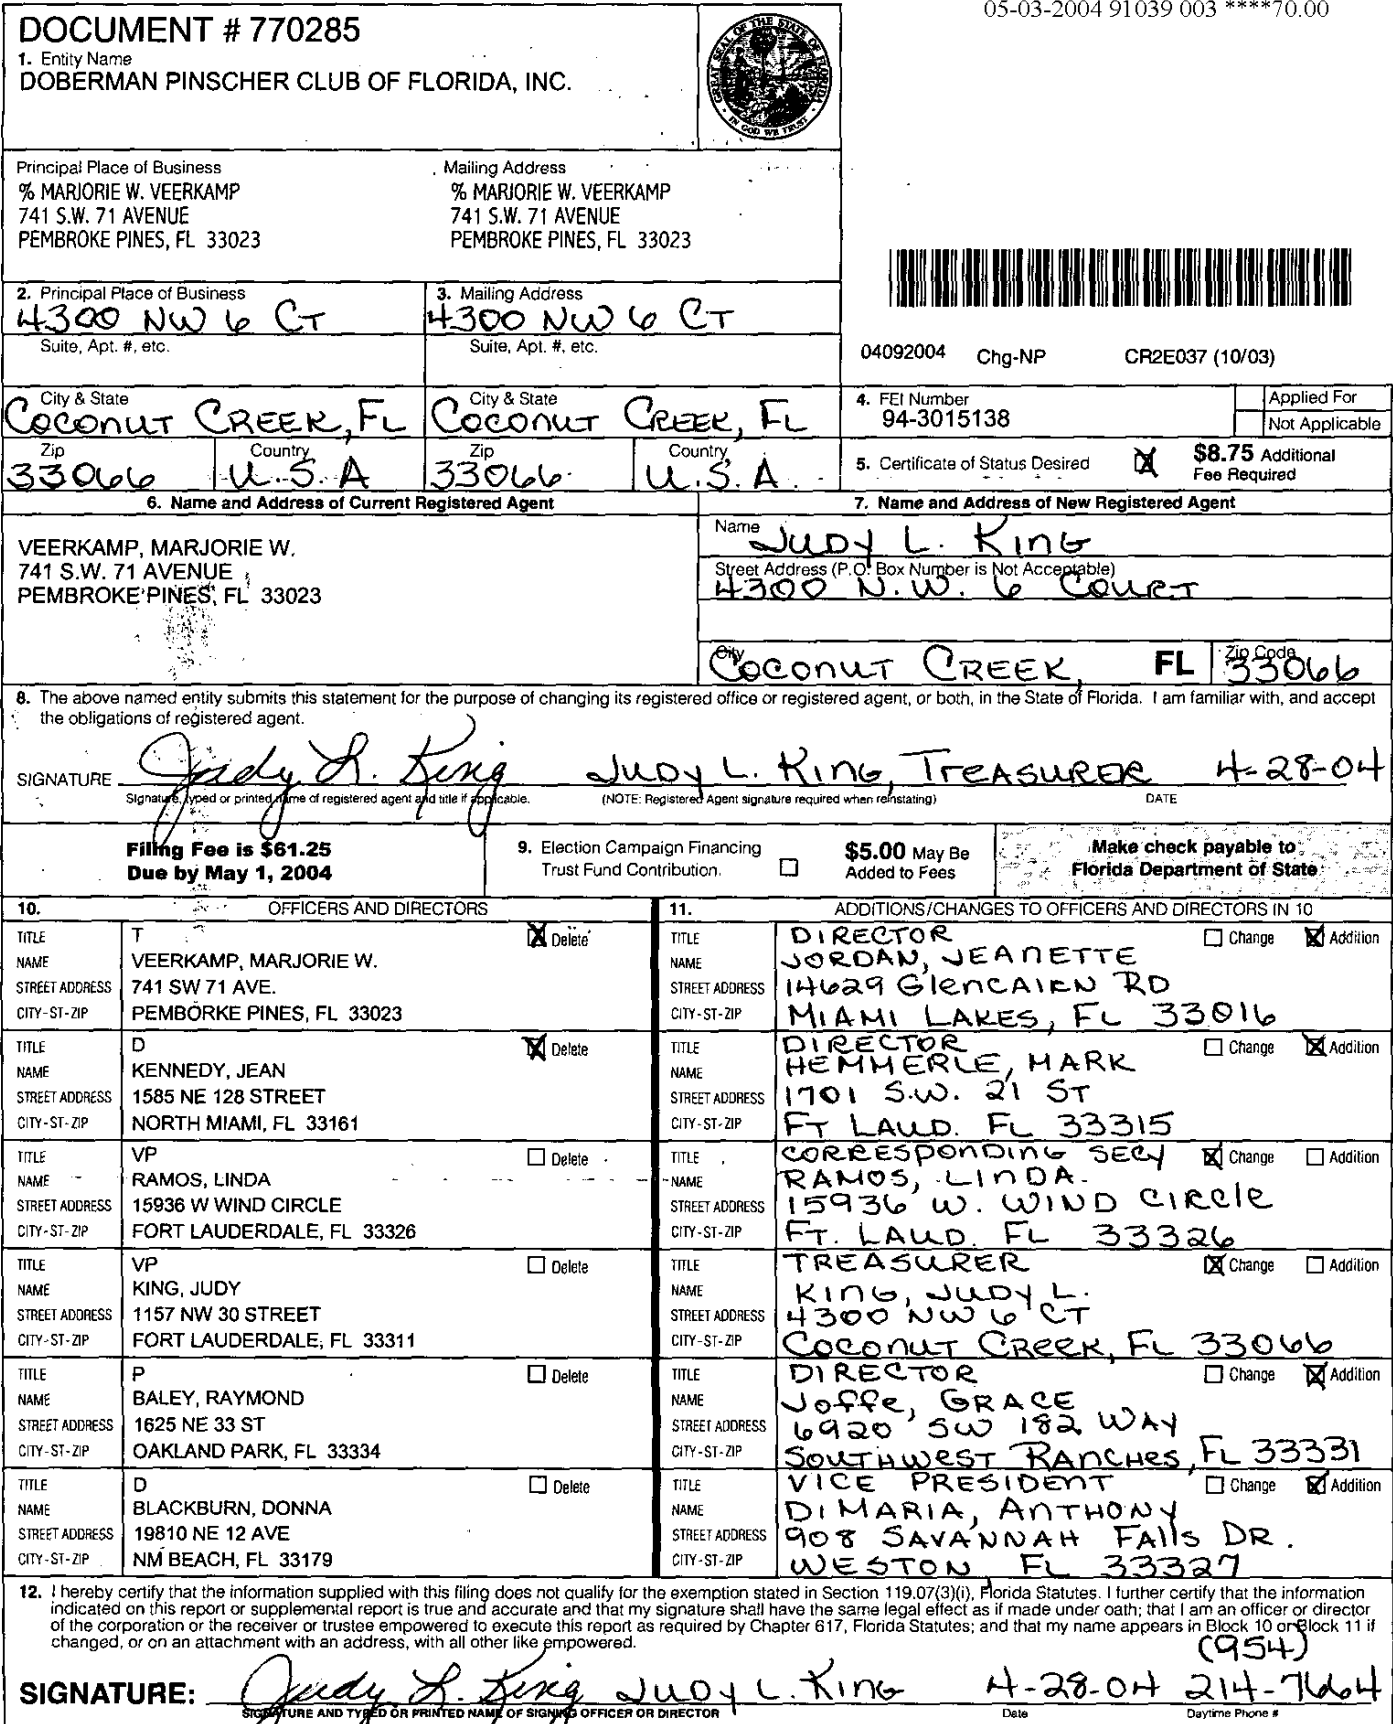 05-03-2004 91039 003 ****70.00
DOCUMENT # 770285
1. Entity Name
DOBERMAN PINSCHER CLUB OF FLORIDA, INC.
GREAT SEAL OF THE STATE OF FLORIDA
IN GOD WE TRUST
Principal Place of Business
% MARJORIE W. VEERKAMP
741 S.W. 71 AVENUE
PEMBROKE PINES, FL 33023
Mailing Address
% MARJORIE W. VEERKAMP
741 S.W. 71 AVENUE
PEMBROKE PINES, FL 33023
2. Principal Place of Business
4300 NW 6 CT
3. Mailing Address
4300 NW 6 CT
Suite, Apt. #, etc.
Suite, Apt. #, etc.
04092004 Chg-NP CR2E037 (10/03)
City & State
COCONUT CREEK, FL
City & State
COCONUT CREEK, FL
4. FEI Number
94-3015138
Applied For
Not Applicable
Zip
33066
Country
U.S.A
Zip
33066
Country
U.S.A.
5. Certificate of Status Desired X $8.75 Additional
Fee Required
6. Name and Address of Current Registered Agent
VEERKAMP, MARJORIE W.
741 S.W. 71 AVENUE
PEMBROKE PINES, FL 33023
7. Name and Address of New Registered Agent
Name JUDY L. KING
Street Address (P.O. Box Number is Not Acceptable)
4300 N.W. 6 COURT
City COCONUT CREEK, FL Zip Code 33066
8. The above named entity submits this statement for the purpose of changing its registered office or registered agent, or both, in the State of Florida. I am familiar with, and accept
the obligations of registered agent.
SIGNATURE Judy L. King JUDY L. KING, TREASURER 4-28-04
Signature, typed or printed name of registered agent and title if applicable. (NOTE: Registered Agent signature required when reinstating) DATE
Filing Fee is $61.25
Due by May 1, 2004
9. Election Campaign Financing
Trust Fund Contribution.
$5.00 May Be
Added to Fees
Make check payable to
Florida Department of State
10. OFFICERS AND DIRECTORS
TITLE T X Delete
NAME VEERKAMP, MARJORIE W.
STREET ADDRESS 741 SW 71 AVE.
CITY-ST-ZIP PEMBORKE PINES, FL 33023
TITLE D X Delete
NAME KENNEDY, JEAN
STREET ADDRESS 1585 NE 128 STREET
CITY-ST-ZIP NORTH MIAMI, FL 33161
TITLE VP Delete
NAME RAMOS, LINDA
STREET ADDRESS 15936 W WIND CIRCLE
CITY-ST-ZIP FORT LAUDERDALE, FL 33326
TITLE VP Delete
NAME KING, JUDY
STREET ADDRESS 1157 NW 30 STREET
CITY-ST-ZIP FORT LAUDERDALE, FL 33311
TITLE P Delete
NAME BALEY, RAYMOND
STREET ADDRESS 1625 NE 33 ST
CITY-ST-ZIP OAKLAND PARK, FL 33334
TITLE D Delete
NAME BLACKBURN, DONNA
STREET ADDRESS 19810 NE 12 AVE
CITY-ST-ZIP NM BEACH, FL 33179
11. ADDITIONS/CHANGES TO OFFICERS AND DIRECTORS IN 10
TITLE DIRECTOR Change X Addition
NAME JORDAN, JEANETTE
STREET ADDRESS 14629 GlenCAIRN RD
CITY-ST-ZIP MIAMI LAKES, FL 33016
TITLE DIRECTOR Change X Addition
NAME HEMMERLE, MARK
STREET ADDRESS 1701 S.W. 21 ST
CITY-ST-ZIP FT LAUD. FL 33315
TITLE CORRESPONDING SECY X Change Addition
NAME RAMOS, LINDA.
STREET ADDRESS 15936 W. WIND CIRCLE
CITY-ST-ZIP FT. LAUD. FL 33326
TITLE TREASURER X Change Addition
NAME KING, JUDY L.
STREET ADDRESS 4300 NW 6 CT
CITY-ST-ZIP COCONUT CREEK, FL 33066
TITLE DIRECTOR Change X Addition
NAME JOFFE, GRACE
STREET ADDRESS 6920 SW 182 WAY
CITY-ST-ZIP SOUTHWEST RANCHES, FL 33331
TITLE VICE PRESIDENT Change X Addition
NAME DIMARIA, ANTHONY
STREET ADDRESS 908 SAVANNAH FALLS DR.
CITY-ST-ZIP WESTON, FL 33327
12. I hereby certify that the information supplied with this filing does not qualify for the exemption stated in Section 119.07(3)(i), Florida Statutes. I further certify that the information
indicated on this report or supplemental report is true and accurate and that my signature shall have the same legal effect as if made under oath; that I am an officer or director
of the corporation or the receiver or trustee empowered to execute this report as required by Chapter 617, Florida Statutes; and that my name appears in Block 10 or Block 11 if
changed, or on an attachment with an address, with all other like empowered.
(954)
SIGNATURE: Judy L. King JUDY L. KING 4-28-04 214-7664
SIGNATURE AND TYPED OR PRINTED NAME OF SIGNING OFFICER OR DIRECTOR Date Daytime Phone #